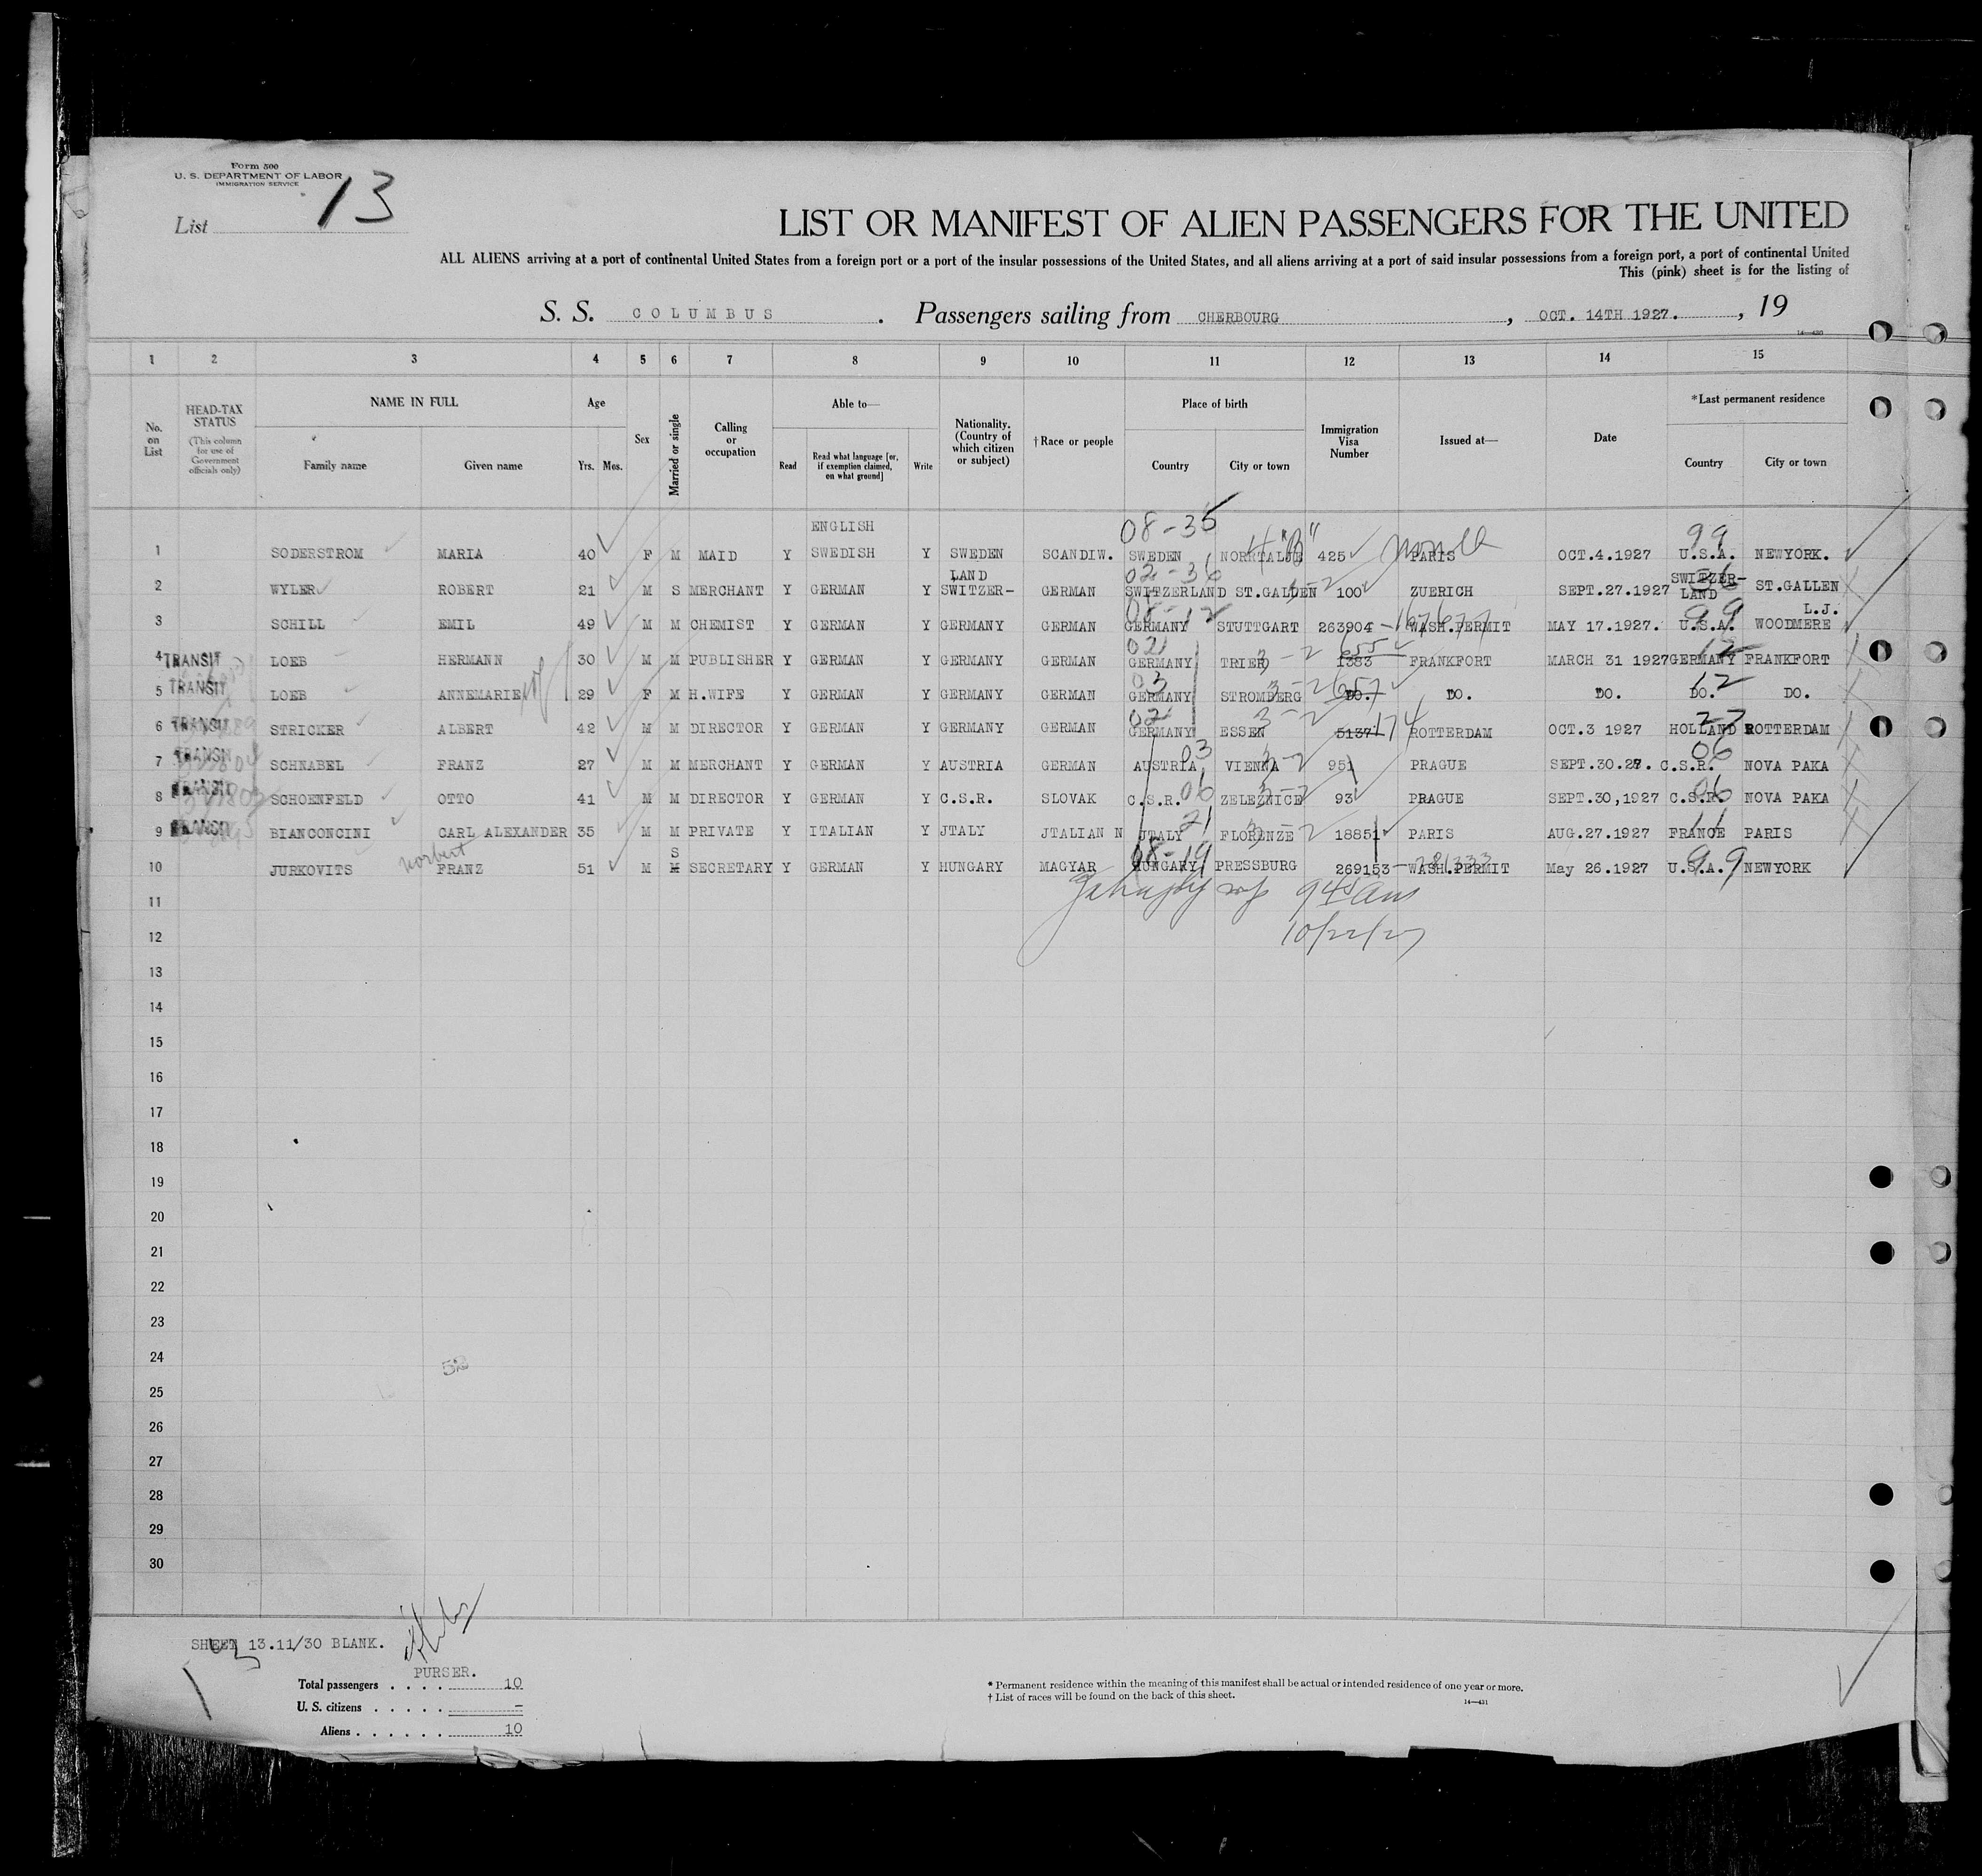 Form 500
U. S. DEPARTMENT OF LABOR
IMMIGRATION SERVICE
List 13
LIST OR MANIFEST OF ALIEN PASSENGERS FOR THE UNITED
ALL ALIENS arriving at a port of continental United States from a foreign port or a port of the insular possessions of the United States, and all aliens arriving at a port of said insular possessions from a foreign port, a port of continental United
This (pink) sheet is for the listing of
S. S. COLUMBUS. Passengers sailing from CHERBOURG, OCT. 14TH 1927., 19
14—430
1 2 3 4 5 6 7 8 9 10 11 12 13 14 15
No. on List
HEAD-TAX STATUS (This column for use of Government officials only)
NAME IN FULL Family name Given name
Age Yrs. Mos.
Sex
Married or single
Calling or occupation
Able to— Read Read what language [or, if exemption claimed, on what ground] Write
Nationality. (Country of which citizen or subject)
†Race or people
Place of birth Country City or town
Immigration Visa Number
Issued at—
Date
*Last permanent residence Country City or town
ENGLISH 08-35 4"B" 99
1 SODERSTROM MARIA 40 F M MAID Y SWEDISH Y SWEDEN SCANDIW. SWEDEN NORRTALJE 425 PARIS OCT.4.1927 U.S.A. NEWYORK.
LAND 02-36 SWITZER-
2 WYLER ROBERT 21 M S MERCHANT Y GERMAN Y SWITZER- GERMAN SWITZERLAND ST.GALLEN 3-2 100 ZUERICH SEPT.27.1927 LAND ST.GALLEN
08-12 99 L.J.
3 SCHILL EMIL 49 M M CHEMIST Y GERMAN Y GERMANY GERMAN GERMANY STUTTGART 263904 -167677 WASH.PERMIT MAY 17.1927. U.S.A. WOODMERE
02 655 12
4 TRANSIT LOEB HERMANN 30 M M PUBLISHER Y GERMAN Y GERMANY GERMAN GERMANY TRIER 3-2 1383 FRANKFORT MARCH 31 1927 GERMANY FRANKFORT
03 657 12
5 TRANSIT LOEB ANNEMARIE 29 F M H.WIFE Y GERMAN Y GERMANY GERMAN GERMANY STROMBERG 3-2 DO. DO. DO. DO. DO.
02 174 27
6 TRANSIT STRICKER ALBERT 42 M M DIRECTOR Y GERMAN Y GERMANY GERMAN GERMANY ESSEN 3-2 5137 ROTTERDAM OCT.3 1927 HOLLAND ROTTERDAM
03 06
7 TRANSIT SCHNABEL FRANZ 27 M M MERCHANT Y GERMAN Y AUSTRIA GERMAN AUSTRIA VIENNA 3-2 951 PRAGUE SEPT.30.27. C.S.R. NOVA PAKA
06 06
8 TRANSIT SCHOENFELD OTTO 41 M M DIRECTOR Y GERMAN Y C.S.R. SLOVAK C.S.R. ZELEZNICE 3-2 93 PRAGUE SEPT.30,1927 C.S.R. NOVA PAKA
21 11
9 TRANSIT BIANCONCINI CARL ALEXANDER 35 M M PRIVATE Y ITALIAN Y JTALY JTALIAN N JTALY FLORENZE 3-2 18851 PARIS AUG.27.1927 FRANCE PARIS
Norbert S 08-19 99
10 JURKOVITS FRANZ 51 M M SECRETARY Y GERMAN Y HUNGARY MAGYAR HUNGARY PRESSBURG 269153 WASH.PERMIT May 26.1927 U.S.A. NEWYORK
11
12 10/22/27
13
14
15
16
17
18
19
20
21
22
23
24
25
26
27
28
29
30
52
SHEET 13.11/30 BLANK.
PURSER.
Total passengers . . . . 10
U. S. citizens . . . . . –
Aliens . . . . . . 10
* Permanent residence within the meaning of this manifest shall be actual or intended residence of one year or more.
† List of races will be found on the back of this sheet.
14—431